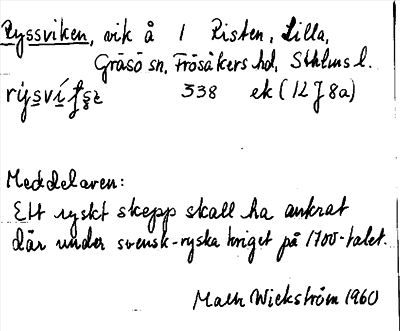 Ryssviken, vik å 1 Risten, Lilla,
Gräsö sn, Frösåkers hd, Sthlms l.
338 ek (12 J 8a)
Meddelaren:
Ett ryskt skepp skall ha ankrat
där under svensk-ryska kriget på 1700-talet.
Math Wickström 1960